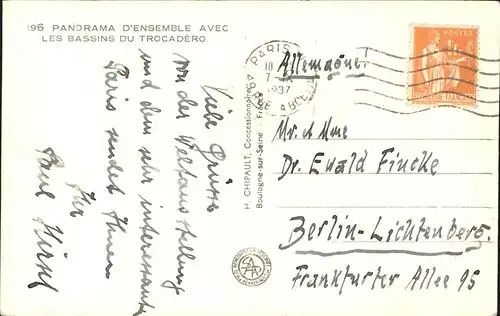 196 PANORAMA D'ENSEMBLE AVEC
LES BASSINS DU TROCADÉRO
Viele Grüsse
von der Weltausstellung
und dem sehr interessanten
Paris sendet Ihnen
Ihr
Paul Hirpf
H. CHIPAULT, Concessionnaire
Boulogne-sur-Seine
PARIS
10
1937
POSTES
Allemagne
Mr. et Mme
Dr. Ewald Fincke
Berlin-Lichtenberg.
Frankfurter Allee 95